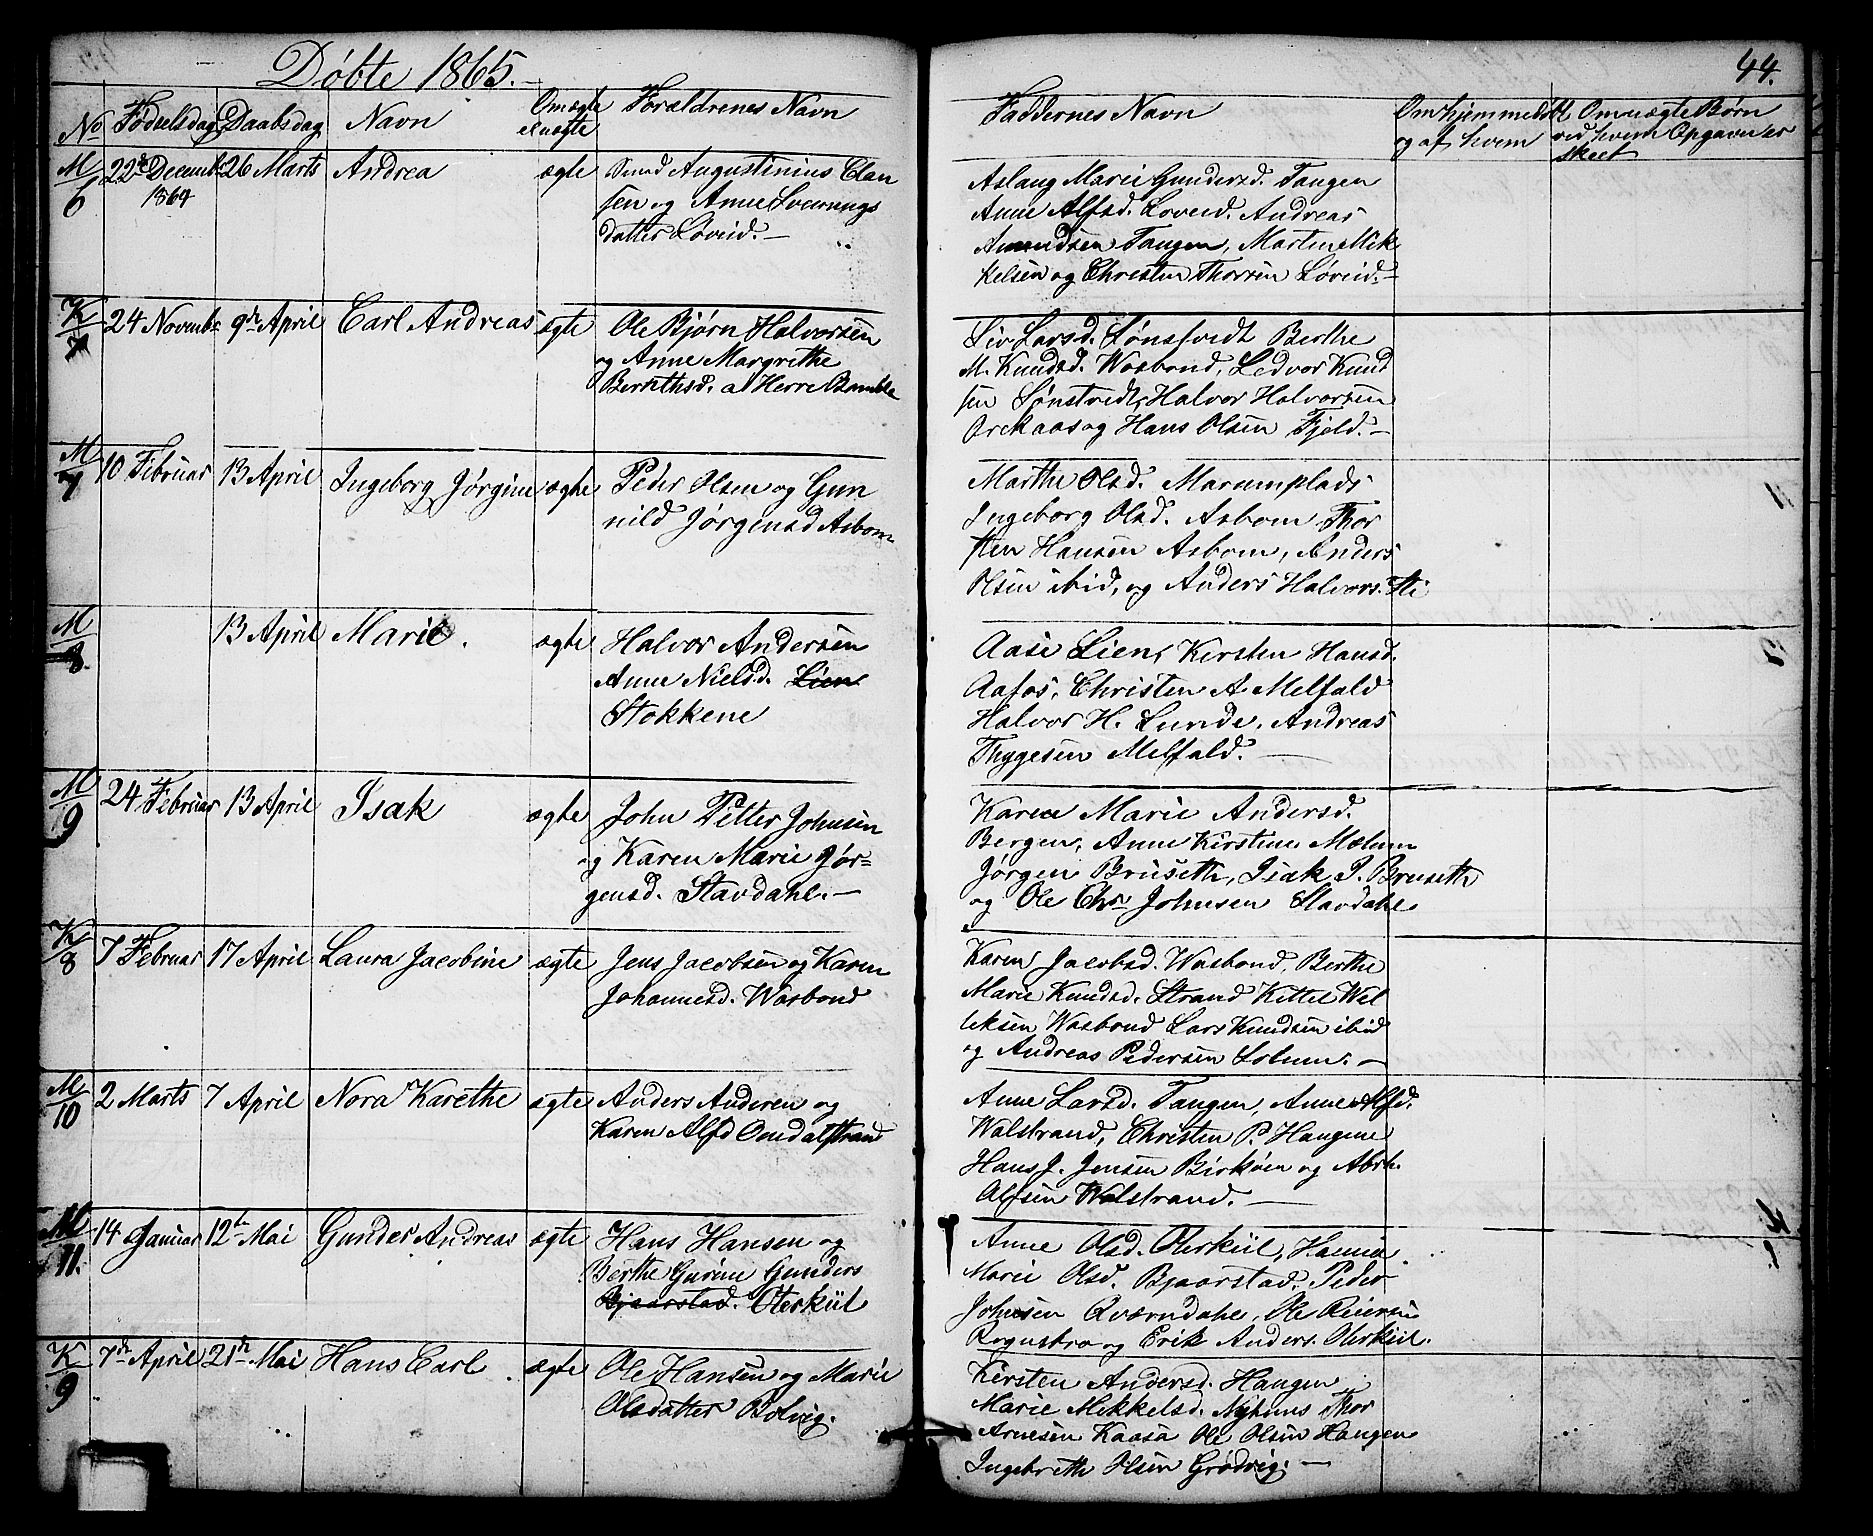 Døbte 1865.
44.
No
Fødselsdag
Daabsdag
Navn
Om ægte el uægte
Forældrenes Navn
Faddernes Navn
Om hjemmedøbt og af hvem
Om uægte Børn ved hvem Opgaven er skeet
M/6
22de Decemb. 1864
26 Marts
Andrea
ægte
Augustinius Clau
sen og Anne
datter Løveid.
Aslaug Marie Gundersd. Tangen
Anne Alfsd. Loveid. Andreas
Amundsen Tangen, Martin Mik
kelsen og Christen Thorsen Løveid.
K/7
24 Novemb.
9de April
Carl Andreas
ægte
Ole Bjørn Halvorsen
og Anne Margrethe
Bernthsd. a Herre Bamble
Siv Larsd. Sønstvedt Berthe
M. Knudsd. Wosbond, Ledvor Knud
sen Sønstvedt, Halvor Halvorsen
Orekaas og Hans Olsen Fjeld.
M/7
10 Februar
13 April
Ingeborg Jørgine
ægte
Peder Olsen og Gun
nild Jørgensd Asbom
Marthe Olsd. Marumplads
Ingeborg Olsd. Asbom Thor
sten Hansen Asbom, Anders
Olsen ibid, og Anders Halvors. Sti
M/8.
13 April
Marie.
ægte
Halvor Andersen
Anne Nielsd. Lien
Stokkene
Aase Lien, Kirsten Hansd.
Aafos, Christen A. Melfald
Halvor H. Lunde, Andreas
Thygesen Melfald.
M/9
24 Februar
13 April
Isak
ægte
John Petter Johnsen
og Karen Marie Jør=
gensd. Stavdahl.
Karen Marie Andersd.
Bergen, Anne Kirstine Mælum
Jørgen Bruseth, Isak P. Bruseth
og Ole Chr Johnsen Stavdahl
K/8
7 Februar
17 April
Laura Jacobine
ægte
Jens Jacobsen og Karen
Johannesd. Wosbond
Karen Jacobsd. Wosbond, Berthe
Marie Knudsd. Strand Kittel Wel
leksen Wosbond Lars Knudsen ibid
og Andreas Pedersen Solum.
M/10
2 Marts
7 April
Nora Karethe
ægte
Anders Anderen og
Karen Alfsd Omdalstrand
Anne Larsd. Tangen, Anne Alfsd.
Wolstrand, Christen P. Haugene
Hans J. Jensen Birkøen og Abrh.
Olfsen Wolstrand.
M/11.
14 Januar
12te Mai
Gunder Andreas
ægte
Hans Hansen og
Berthe Gurine Gunders
Bjaarstad. Oterkiil
Anne Olsd. Oterkiil, Hanne
Marie Olsd. Bjaarstad. Peder
Johnsen Qværndahl, Ole Reiersen
Rognsbro og Erik Anders. Oterkiil.
K/9
7de April
21de Mai
Hans Carl
ægte
Ole Hansen og Marie
Olsdatter Bolvig.
Kirsten Andersd. Haugen
Marie Mikkelsd. Nyhuus Thor
Arnesen Kaasa Ole Olsen Haugen
Ingebreth Olsen Grødvig.